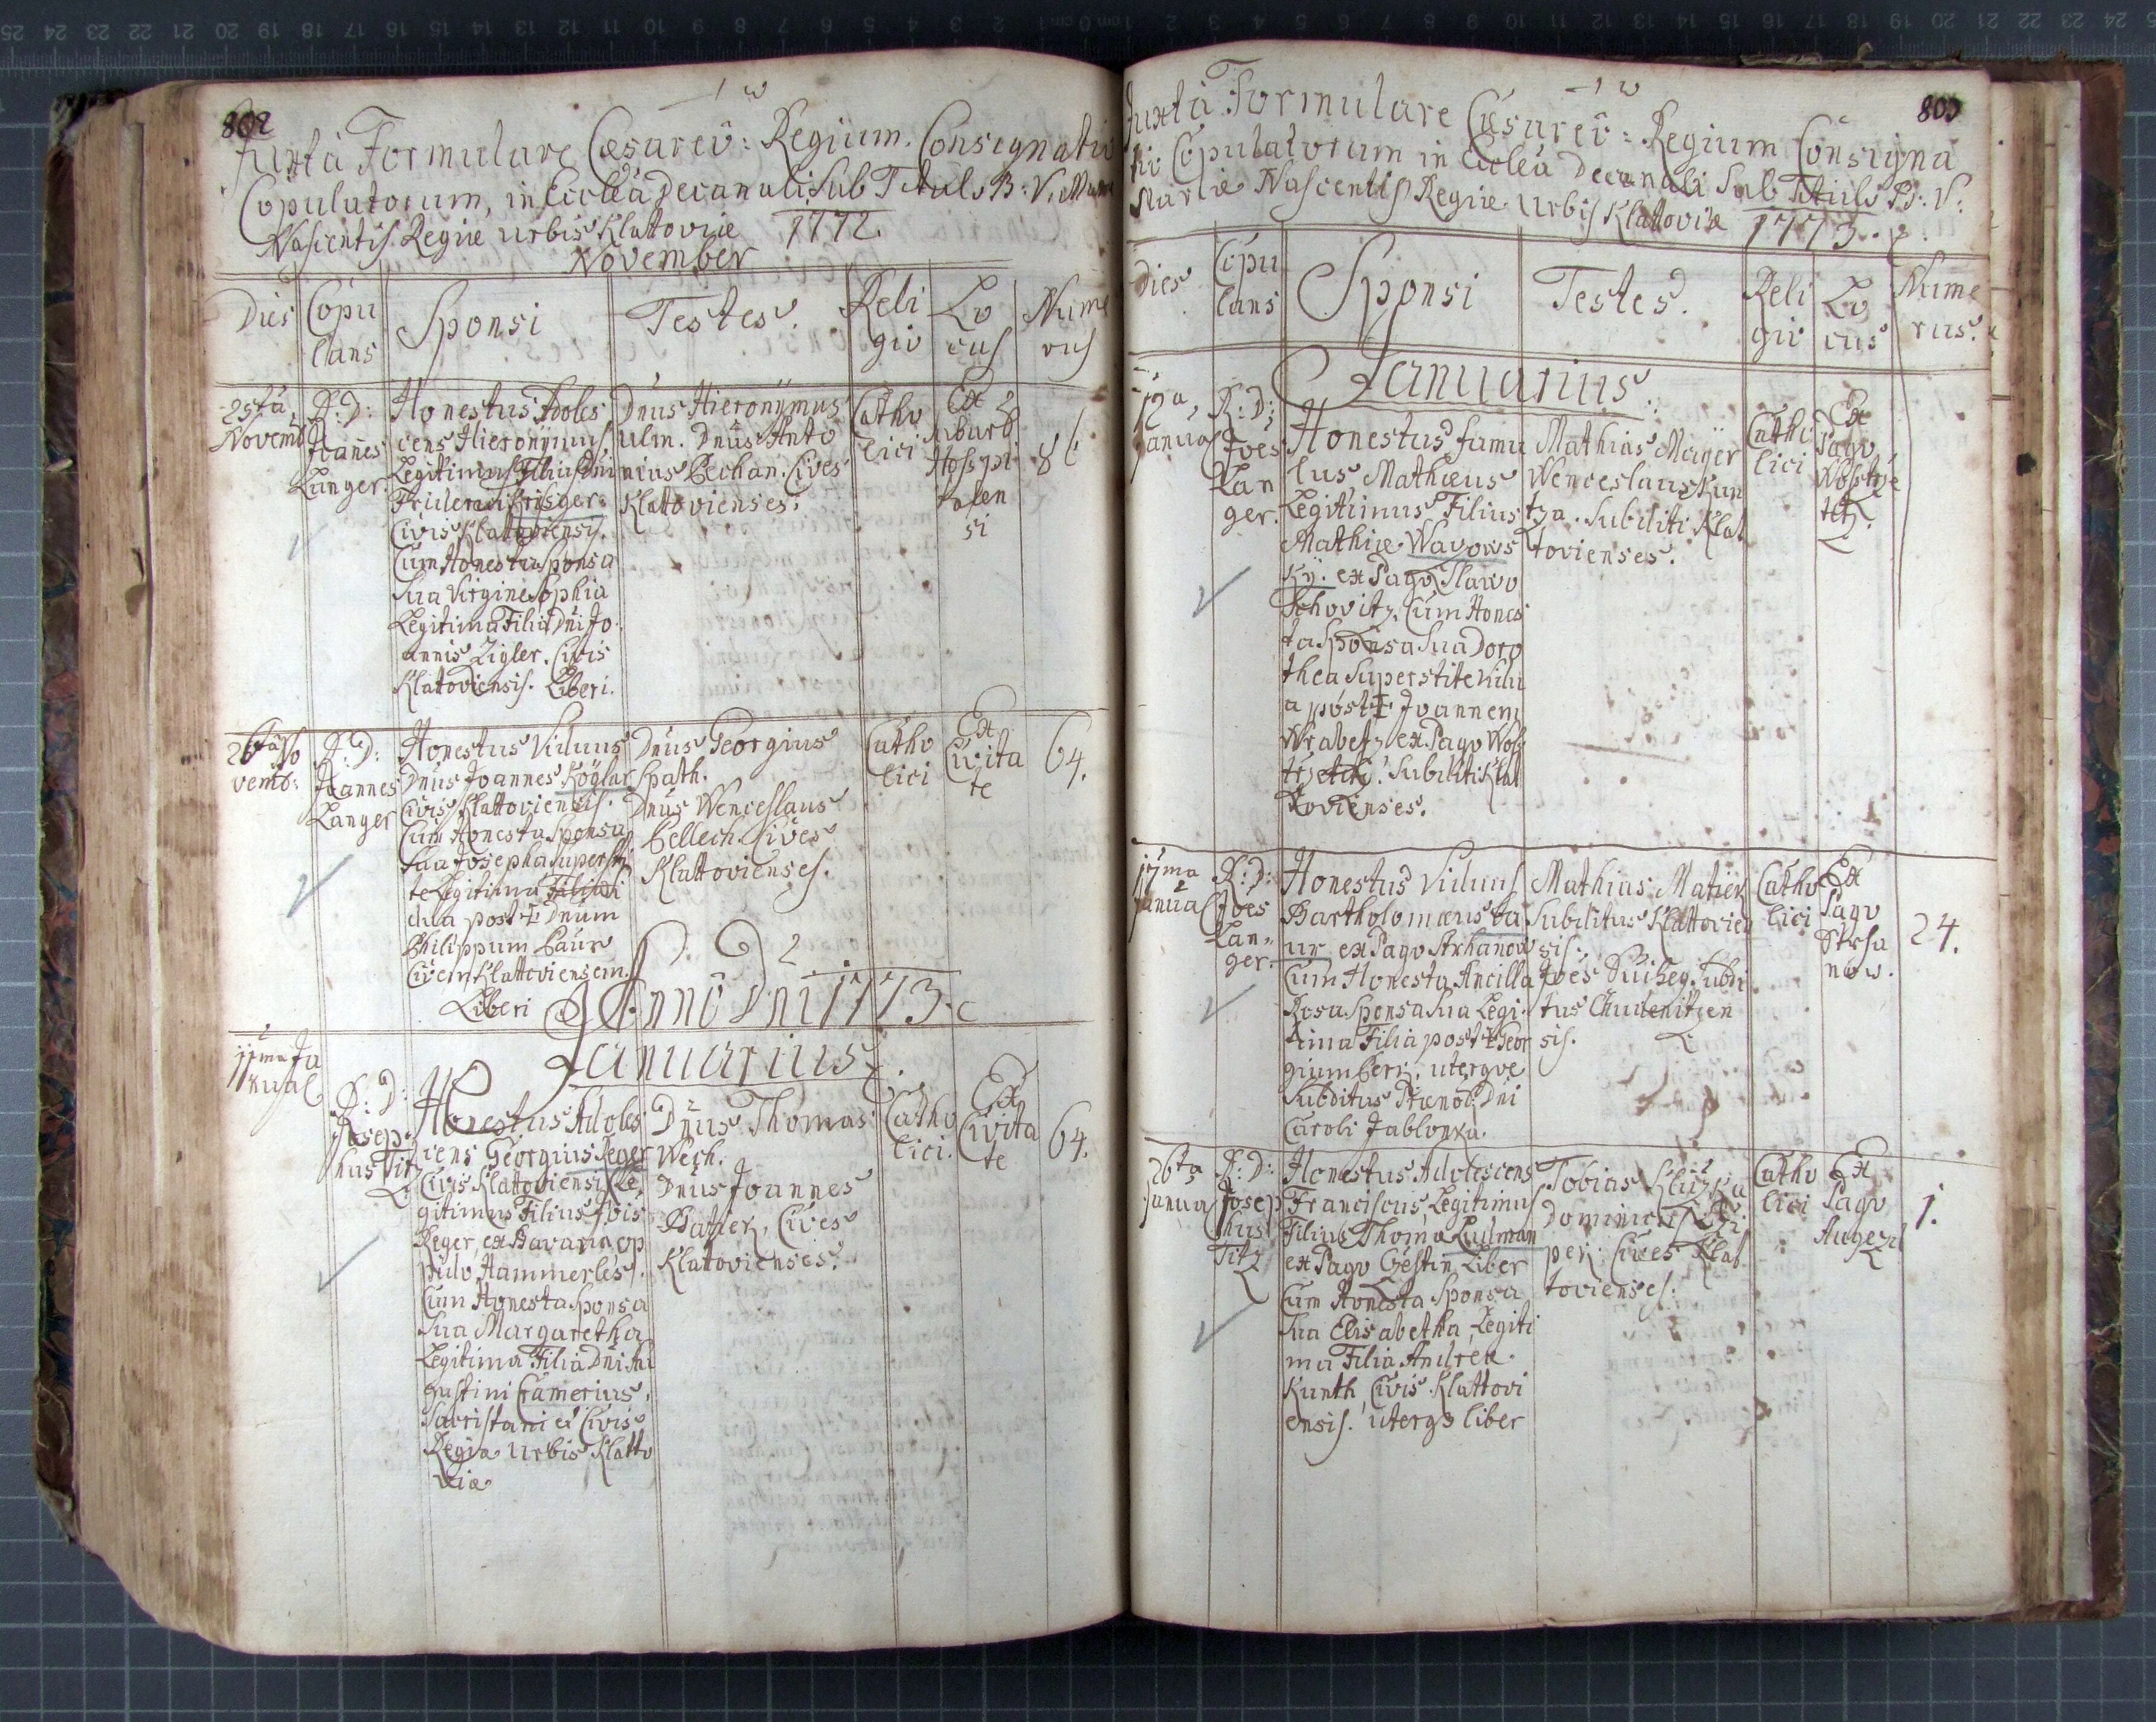 802
Juxta Formulare Cæsareũ: Regium. Consignatio
Copulatorum, in Ecclẽa Decanali Sub Titulo B: V: Mariæ
Nascentis. Regiæ urbis Klattoviæ 1772.
November
Dies
Copu
lans
Sponsi
Testes.
Reli
gio
Lo
cus
Nume
rus
25ta
Novemb
R: D:
Joanes
Langer.
Honestus Adoles
cens Hieronymus
Legitimus Filius Dni
Friderici Frisger.
Civis Klattoviensis.
Cum Honesta Sponsa
sua Virgine Sophia
Legitima Filia Dni Jo
annis Zigler. Civis
Klatoviensis. Liberi.
Dnus Hieronymus
Ulm. Dnus Anto
nius Bechan. Cives
Klatovienses.
Catho
lici
Ex
suburb
Hospi
talen
si
26ta No
vemb:
R: D:
Joannes
Langer
Honestus Viduus
Dnus Joannes Köglar
Civis Klattoviensis.
Cum Honesta Sponsa
sua Josepha Supersti
te Legitima Filia Vi
dua post ‡ Dnum
Philippum Baur
Civem Klattoviensem.
Liberi
Dnus Georgius
Spath.
Dnus Wenceslaus
Bellech. Cives
Klattovienses.
Catho
lici
Ex
Civita
te
64.
Anno Dni 1773.
Januarius.
11ma Ja
nual
R: D:
Josep
hus Titz
Honestus Adoles
cens Georgius Reger
Civis Klattoviensis Le
gitimus Filius Jois
Reger, ex Bavaria op
pido Hammerles.
Cum Honesta Sponsa
sua Margaretha
Legitima Filia Dni Au
gustini Cramerius,
Sacristani et Civis
Regia urbis Klatto
viæ
Dnus Thomas
Wech.
Dnus Joannes
Bather, Cives
Klatovienses.
Catho
lici.
Ex
Civita
te
64.
803
Juxta Formulare Cæsareũ: Regium Consigna
tio Copulatorum in Ecclẽa Decanali Sub Titulo B: V:
Mariæ Nascentis Regiæ urbis Klattoviæ 1773.
Dies
Copu
lans
Sponsi
Testes.
Reli
gio
Lo
cus
Nume
rus.
Januarius.
12a
Janua
R: D:
Joes
Lan
ger.
Honestus famu
lus Mathæus
Legitimus Filius
Mathiæ Wavows
ky. ex Pago Slawo
schovitz. Cum Hones
ta Sponsa sua Doro
thea Superstite Vidu
a post ‡ Joannem
Wrabetz ex Pago Wos
trzetitz. Subditi Klat
tovienses.
Mathias Mayer
Wenceslaus Kun
tza. Subditi Klat
tovienses.
Catho
lici
Ex
Pago
Wostrze
titz.
17ma
Janua
R: D:
Joes
Lan=
ger.
Honestus Viduus
Bartholomæus Ja
ur ex Pago Strhanow
Cum Honesta Ancilla
Rosa Sponsa sua Legi
tima Filia post ‡ Geor
gium Berj, uterqve
Subditus Prænob: Dni
Caroli Jablonka.
Mathias Matier
Subditus Klattovien
sis.
Joes Suchey. Subdi
tus Chudenitzen
sis.
Catho
lici
Ex
Pago
Strha
now.
24.
26ta
Janua
R: D:
Josep
hus
Titz
Honestus Adolescens
Franciscus, Legitimus
Filius Thomæ Kulman
ex Pago Gestin, Liber
Cum Honesta Sponsa
sua Elisabetha, Legiti
ma Filia Andreæ
Kunth Civis Klattovi
ensis. uterq3 liber
Tobias Kluzka
Dominicus
per. Cives Klat
tovienses.
Catho
lici
Ex
Pago
Augezd
1.